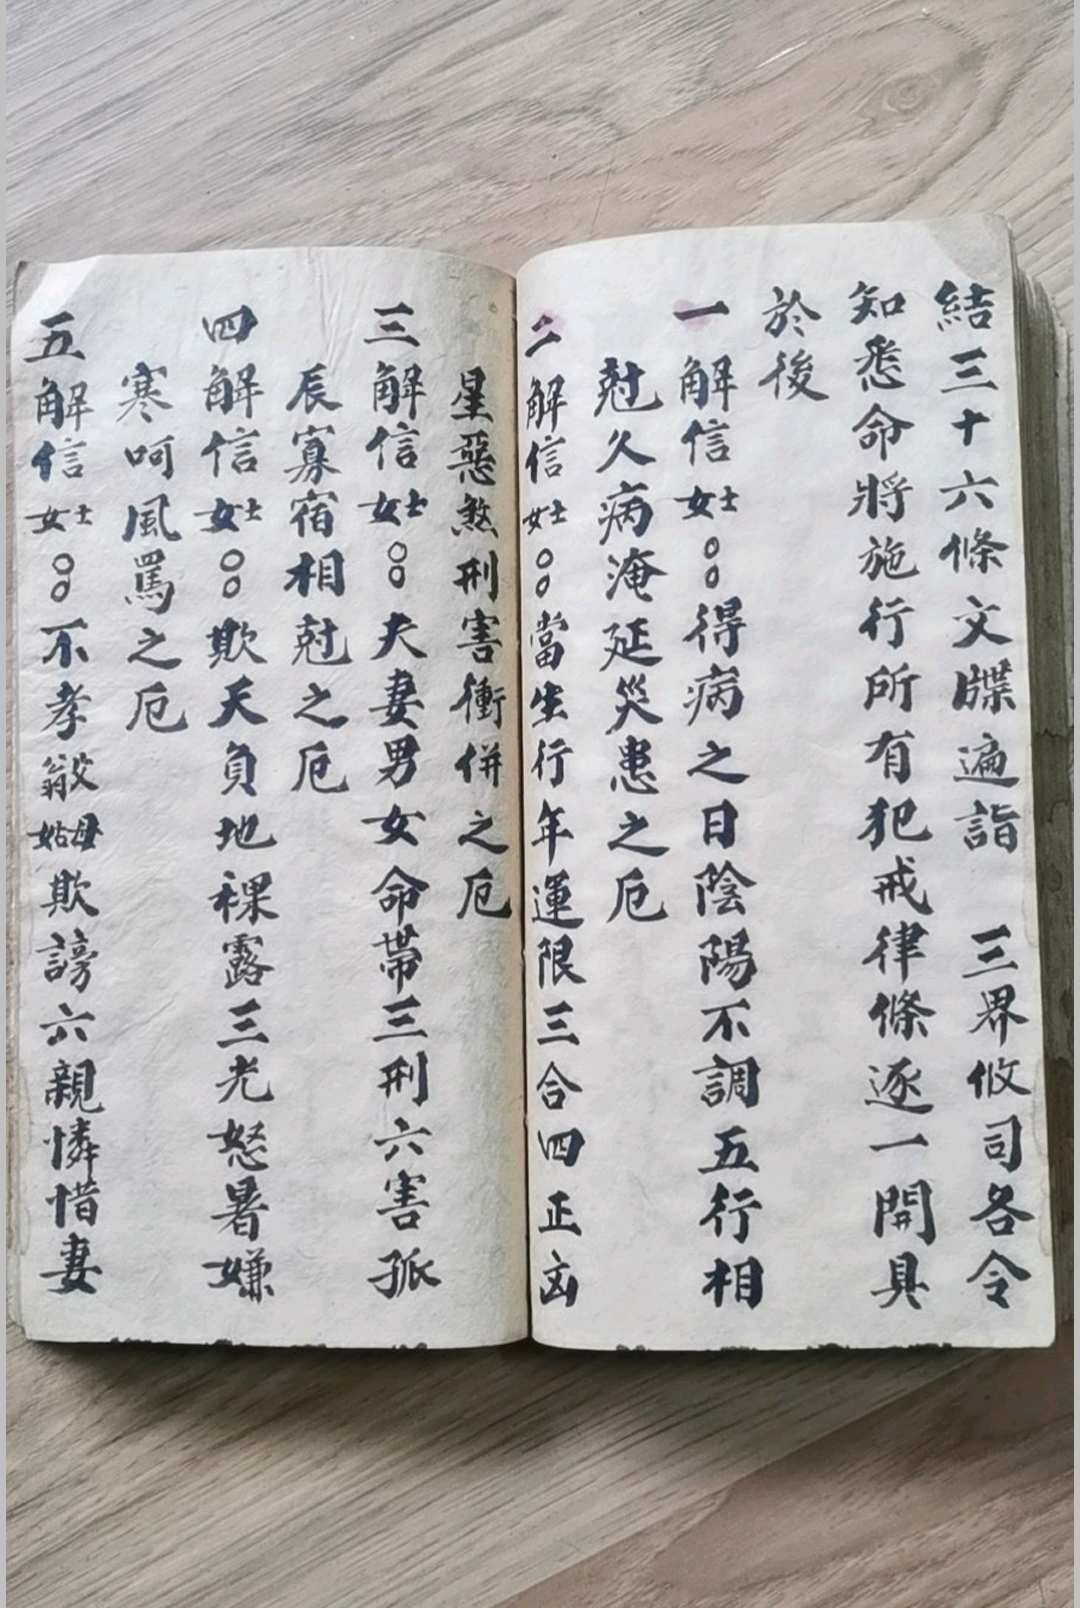 結三十六條文牒遍詣　三界攸司各令
知悉命將施行所有犯戒律條逐一開具
於後
一解信士女○○得病之日陰陽不調五行相
尅久病淹延災患之厄
二解信士女○○當生行年運限三合四正凶
星惡煞刑害衝併之厄
三解信士女○○夫妻男女命帶三刑六害孤
辰寡宿相尅之厄
四解信士女○○欺天負地裸露三光怒暑嫌
寒呵風罵之厄
五解信士女○○不孝父母翁姑欺謗六親憐惜妻